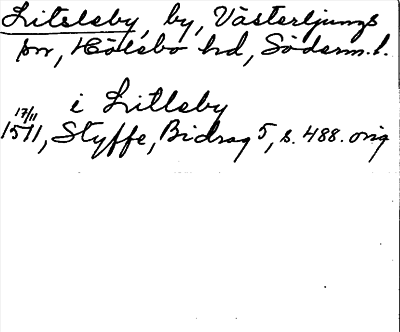 Litslsby, by, Västerljungs
sn, Hölebo hd, Söderm. l.
i Litlsby
17/11
1511, Styffe, Bidrag 5, s. 488. orig